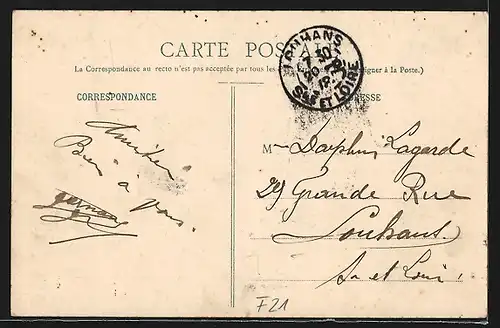 CARTE POSTALE
La Correspondance au recto n'est pas acceptée par tous les
igner à la Poste.)
CORRESPONDANCE
RESSE
LOUHANS
SNE ET LOIRE
Amitiés
Bien à vous.
M Daphin Lagarde
29 Grande Rue
Louhans.
S. et Loire
F21